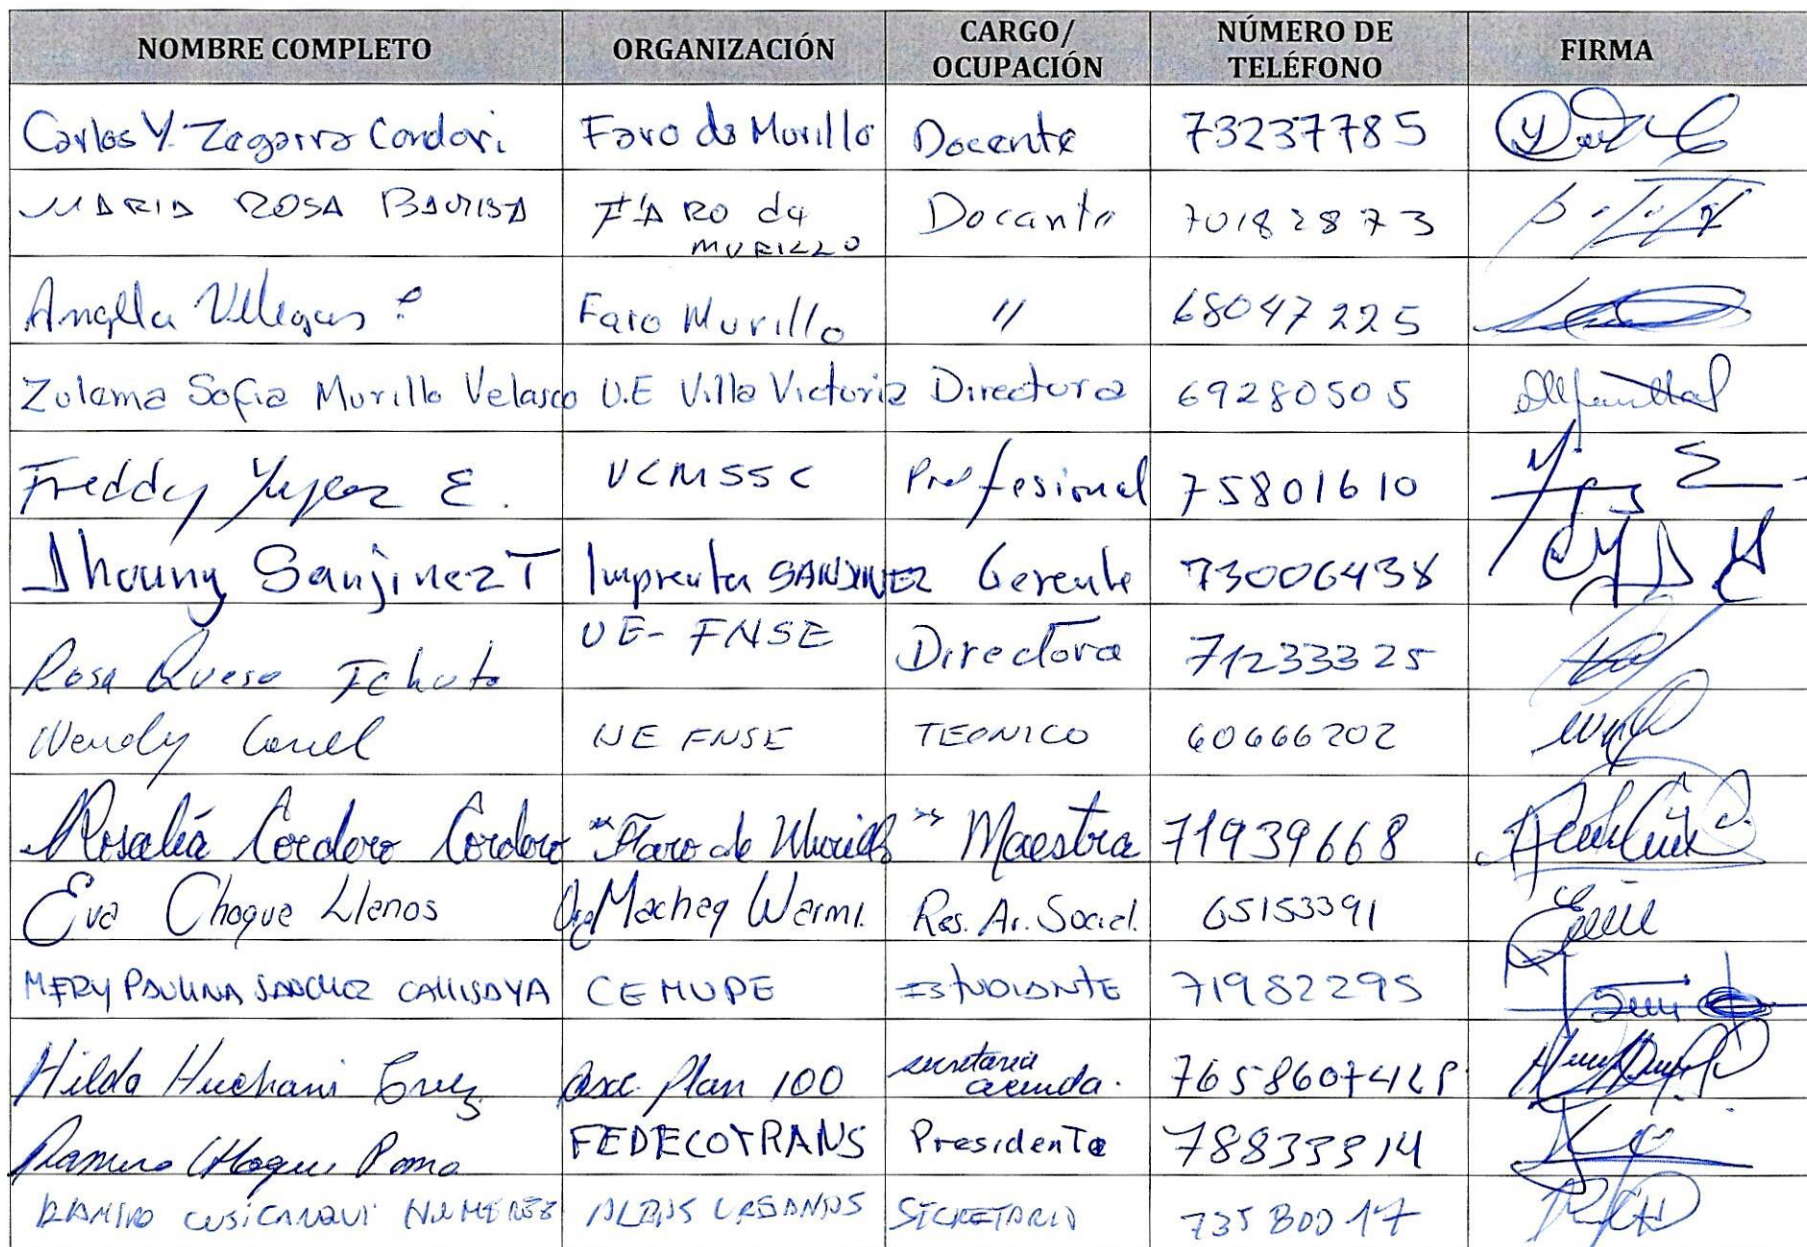 NOMBRE COMPLETO ORGANIZACIÓN CARGO/ OCUPACIÓN NÚMERO DE TELÉFONO FIRMA
Carlos Y. Zegarra Condori Faro de Murillo Docente 73237785
MARIA ROSA BAUTISTA FARO de MURILLO Docente 70182873
Angela Villegas Faro Murillo " 68047225
Zulema Sofia Murillo Velasco U.E Villa Victoria Directora 69280505
Freddy E. VCMSSC Profesional 75801610
Jhonny Sanjinez T Imprenta SANJINEZ Gerente 73006438
Rosa Queso UE-FNSE Directora 71233325
Wendy UE FNSE TECNICO 60666202
Rosalia Cordero Cordero "Faro de Murillo" Maestra 71939668
Eva Choque Llanos Org Machaq Warmi. Res. Ar. Social. 65153391
MERY PAULINA SANCHEZ CALLISAYA CEMUPE ESTUDIANTE 71982295
Hilda Huchani Cruz Asoc. Plan 100 secretaria
Ramiro Choque Poma FEDECOTRANS Presidente
RAMIRO CUSICANQUI SECRETARIO